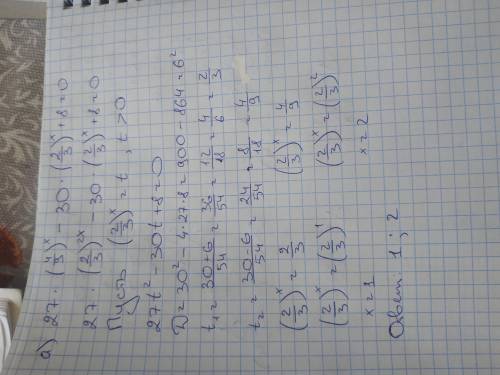 а) 27 · (4/9)^x − 30 · (2/3)^x + 8 = 0
27 · (2/3)^2x − 30 · (2/3)^x + 8 = 0
Пусть (2/3)^x = t, t > 0
27t² − 30t + 8 = 0
D = 30² − 4·27·8 = 900 − 864 = 6²
t₁ = (30+6)/54 = 36/54 = 12/18 = 4/6 = 2/3
t₂ = (30−6)/54 = 24/54 = 8/18 = 4/9
(2/3)^x = 2/3 (2/3)^x = 4/9
(2/3)^x = (2/3)^1 (2/3)^x = (2/3)^2
x = 1 x = 2
Ответ: 1 ; 2